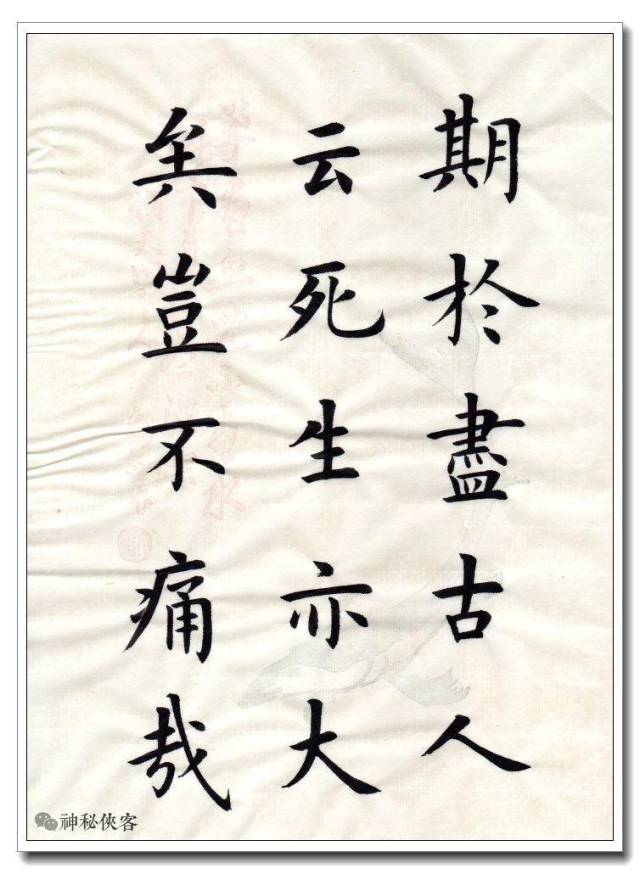 期於盡古人
云死生亦大
矣豈不痛哉
神秘俠客